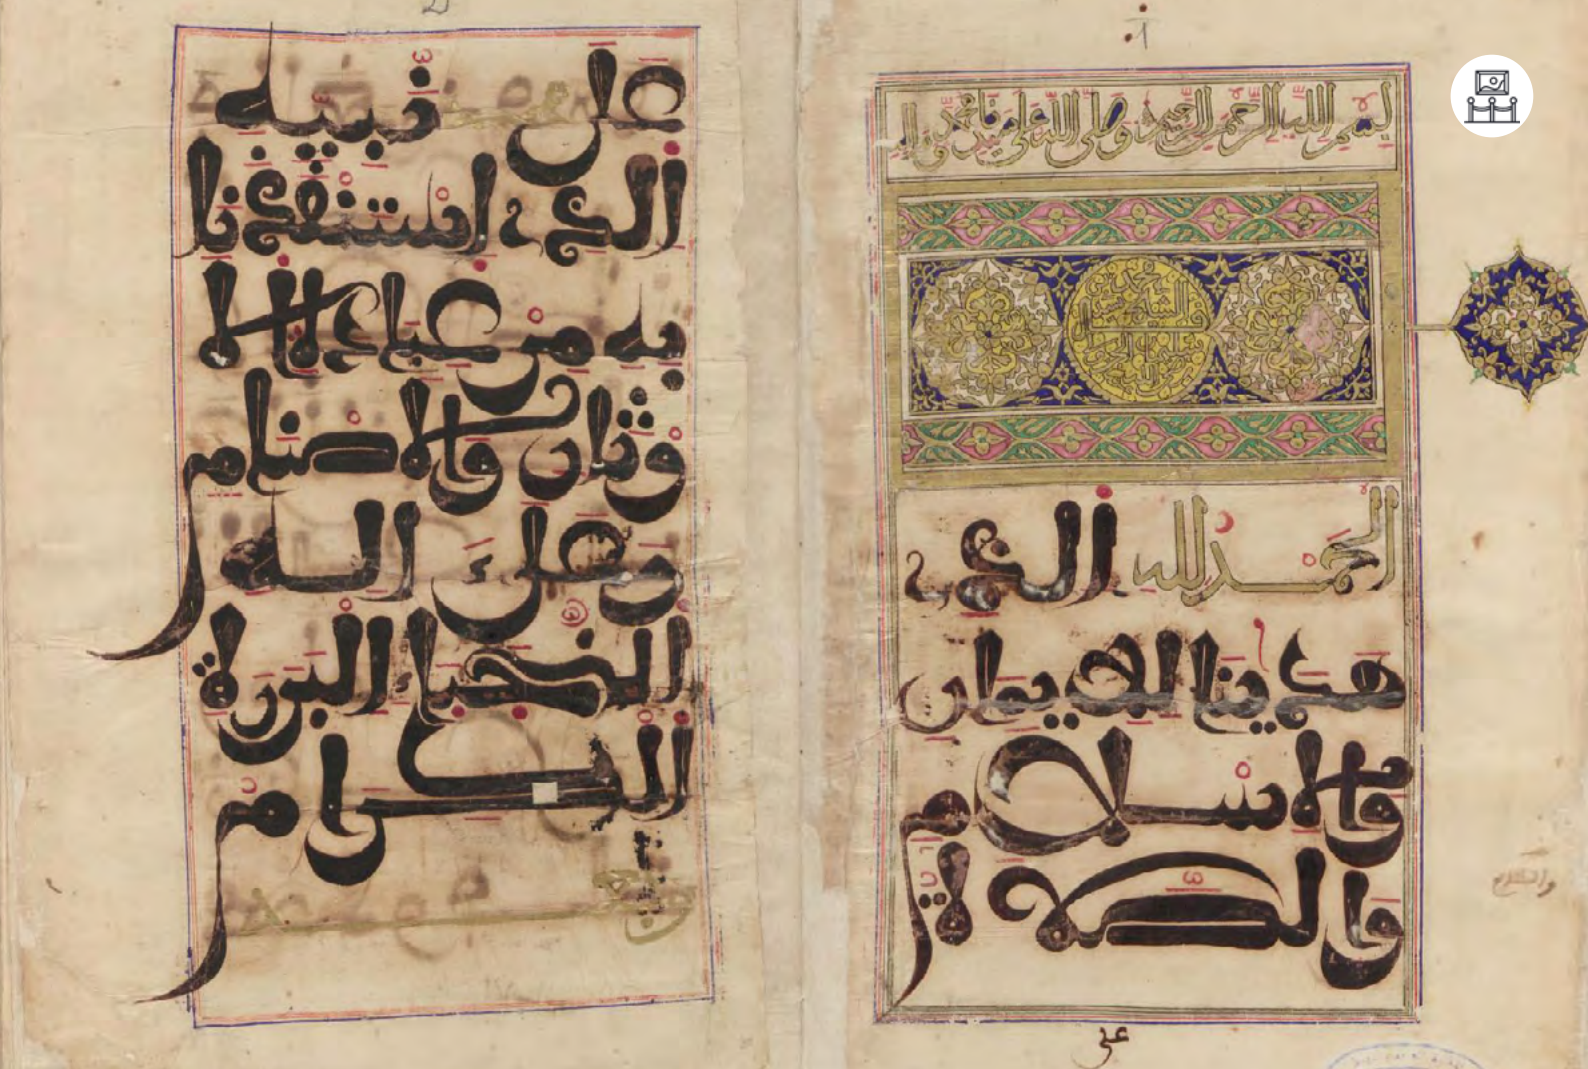 ١
بسم الله الرحمن الرحيم وصلى الله على سيدنا محمد
الحمد لله الذي
هدينا للايمان
والاسلام
والصلاة
على
على نبيه
الذي استنقذنا
به من عبادة الا
وثان والاصنام
وعلى اله
النجباء البررة
الكرام